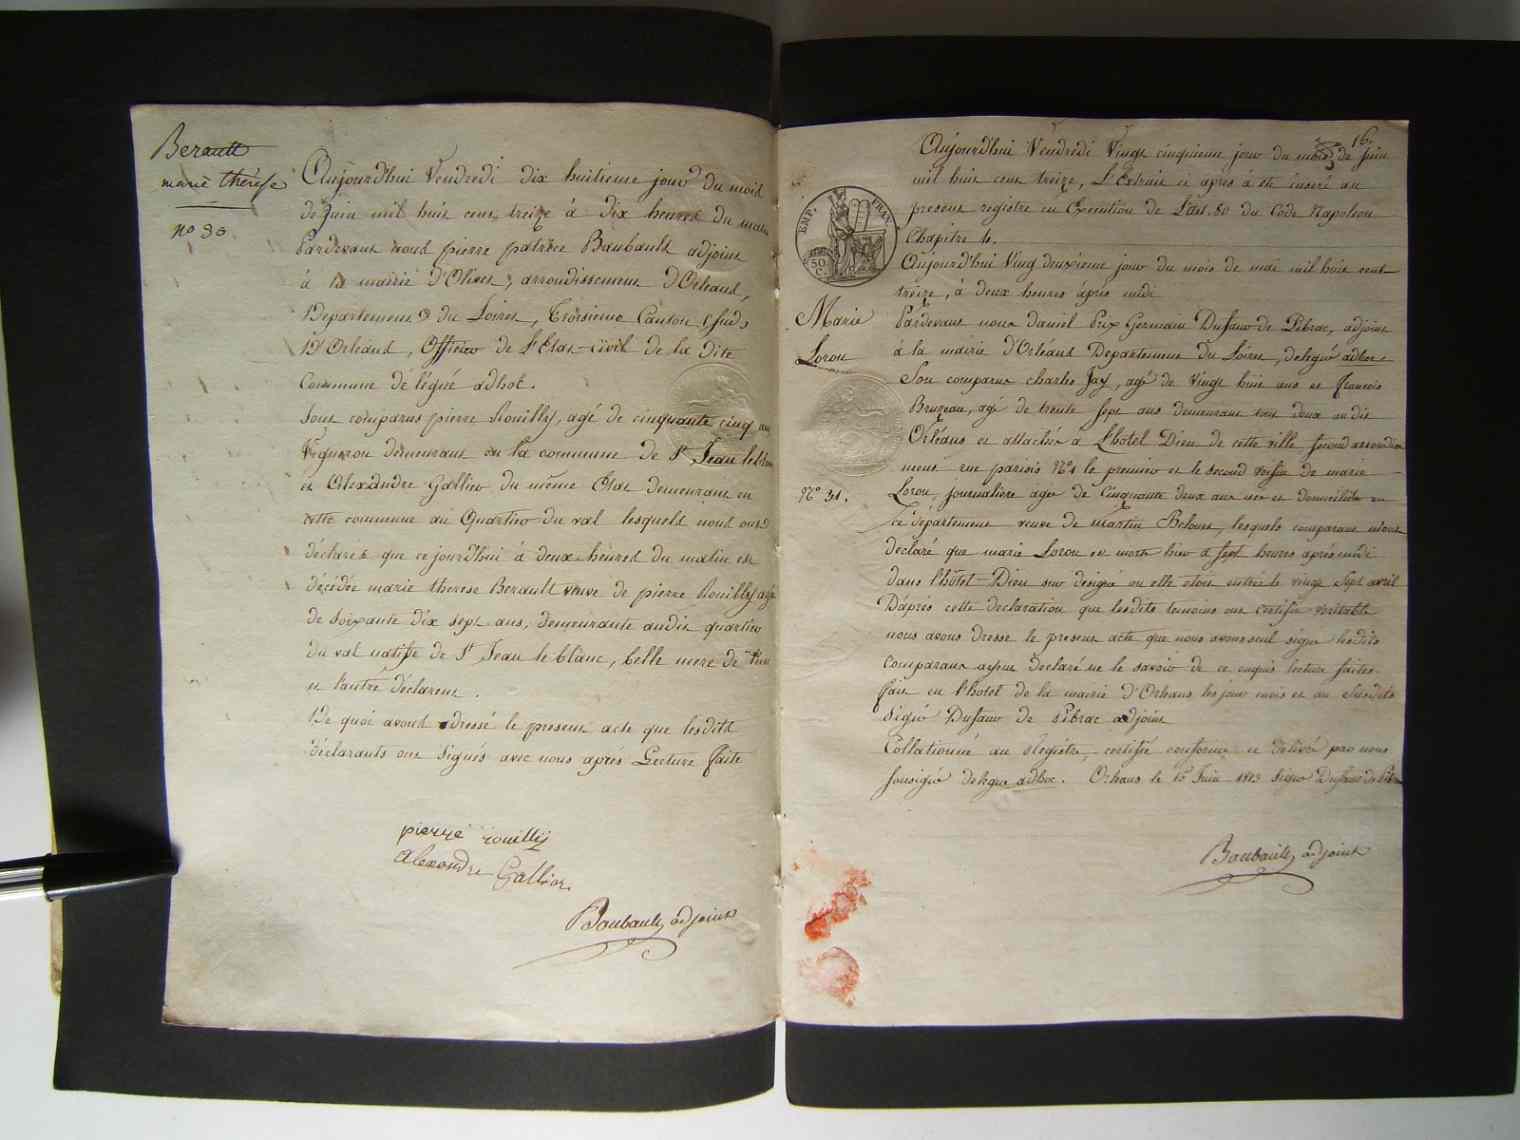 Berault
marie thérèse
n° 30
Aujourd'hui Vendredi dix huitieme jour du mois
de juin mil huit cent treize à dix heures du matin
Pardevant nous pierre patrice Baubault adjoint
à la mairie d'Olivet, arrondissement d'Orleans,
Departement du Loiret, Troisieme Canton, sud
D'Orleans, Officier de l'Etat-civil de la dite
Commune délégué adhoc.
Sont comparus pierre Rouilly, agé de cinquante cinq ans
Vigneron demeurant en la commune de St Jean le blanc
et Alexandre Gallier du même Etat demeurant en
cette commune au Quartier du val lesquels nous ont
déclarés que cejourd'hui à deux heures du matin est
décédée marie therese Berault veuve de pierre Rouilly agée
de soixante dix sept ans, demeurante audit quartier
du val native de St Jean le blanc, belle mere de l'un
et l'autre déclarent.
De quoi avons dressé le present acte que lesdits
déclarants ont signés avec nous après Lecture faite
pierre rouilly
alexandre Gallier
Baubault, adjoint
16.
Aujourd'hui Vendredi Vingt cinquieme jour du mois de juin
mil huit cent treize, L'Extrait ci apres à été inseré au
present registre en Execution de l'art. 80 du Code Napoleon
Chapitre 4.
EMP. FRAN.
50 C.
Aujourd'hui Vingt deuxieme jour du mois de mai mil huit cent
treize, à deux heures après midi
Marie
Lorou
Pardevant nous daniel Prix Germain Dufaur de Pibrac, adjoint
à la mairie d'Orléans Departement du Loiret, delegué adhoc
Son comparus charles Jay, agé de Vingt huit ans et françois
Bruzeau, agé de trente sept ans demeurant tous deux audit
Orléans et attachés à l'hotel Dieu de cette ville second arrondisse
ment rue parisis N° 1 le premier et le second voisin de marie
N° 31.
Lorou, journalière agée de Cinquante deux ans née et domiciliée en
ce département veuve de martin Belouet, lesquels comparans m'ont
declaré que marie Lorou est morte hier à sept heures après midi
dans l'hôtel-Dieu sus désigné ou elle etoit entrée le vingt sept avril
D'après cette declaration que lesdits temoins ont certifié veritable
nous avons dressé le present acte que nous avons seul signé lesdits
comparans ayant declaré ne le savoir de ce enquis lecture faite
fait en l'hotel de la mairie d'Orleans les jour mois et an susdits
Signé Dufaur de pibrac adjoint
Collationné au Registre, certifié conforme et delivré par nous
sousigné delegué adhoc. Orleans le 15 Juin 1813 Signé Dufaur de Pibrac
Baubault, adjoint